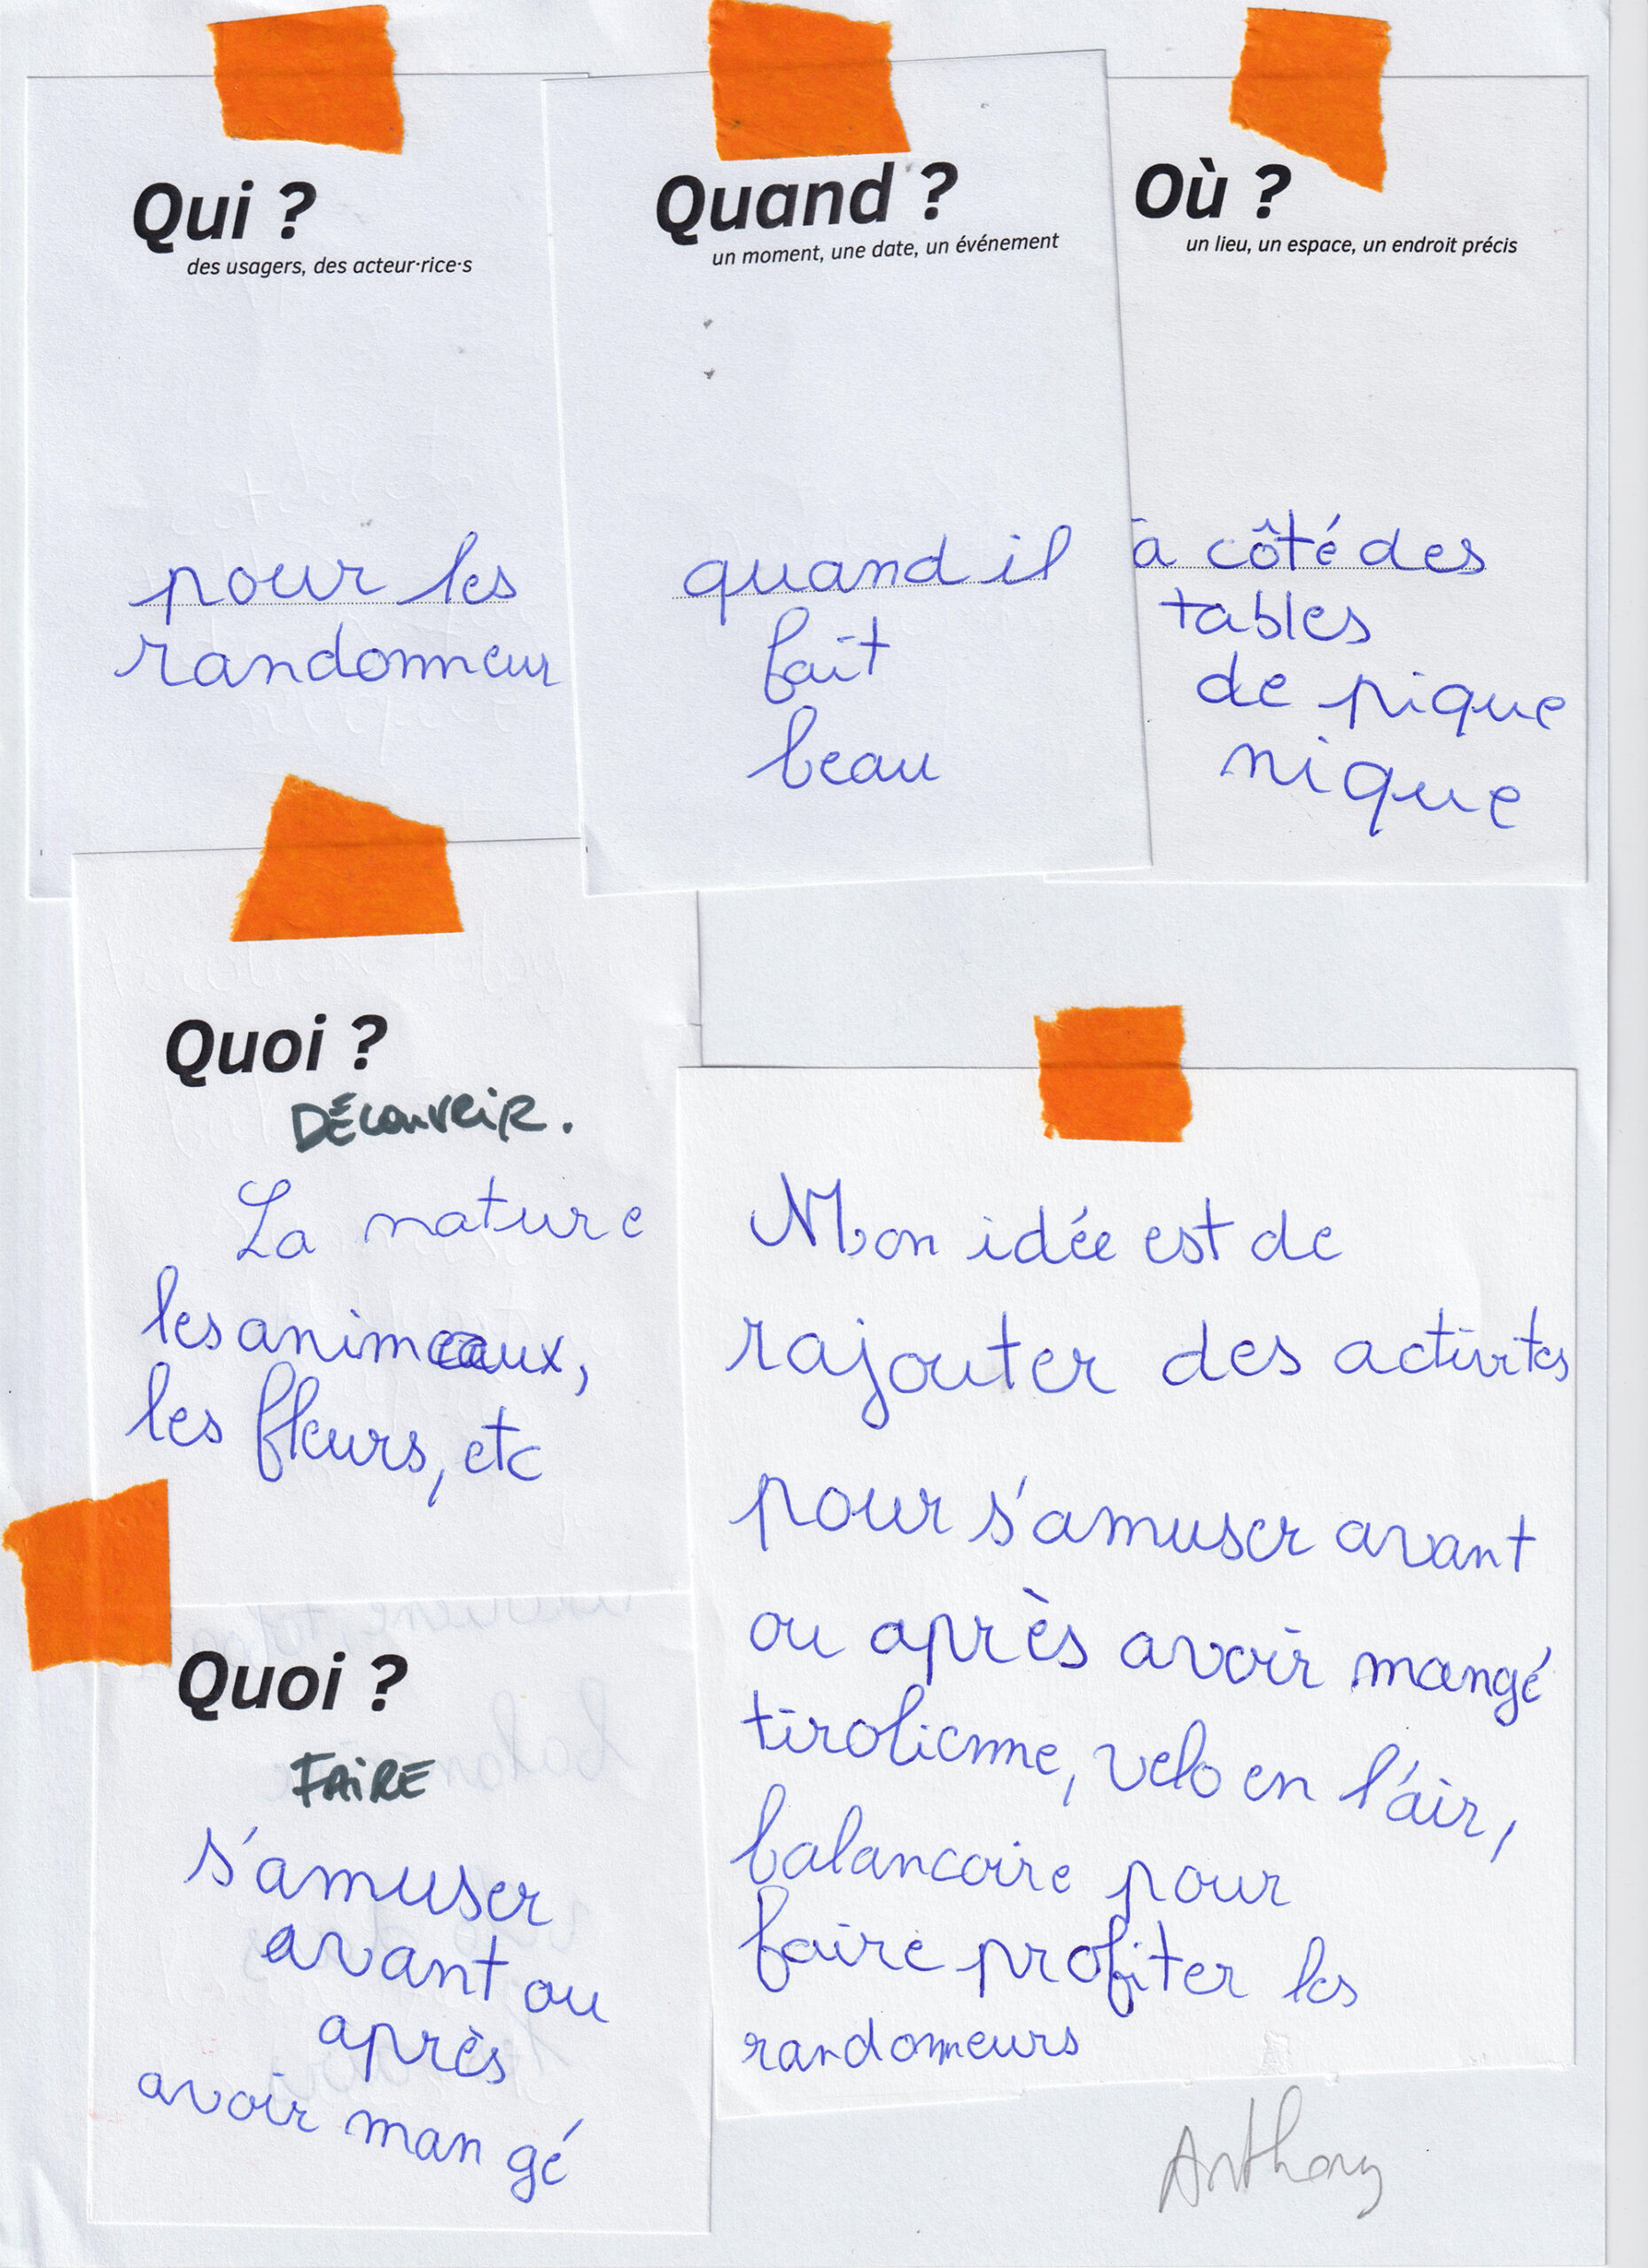 Qui ?
des usagers, des acteur·rice·s
pour les
randonneur
Quand ?
un moment, une date, un événement
quand il
fait
beau
Où ?
un lieu, un espace, un endroit précis
à côté des
tables
de pique
nique
Quoi ?
DÉCOUVRIR.
La nature
les animaux,
les fleurs, etc
Quoi ?
FAIRE
s'amuser
avant ou
après
avoir mangé
Mon idée est de
rajouter des activites
pour s'amuser avant
ou après avoir mangé
tirolienne, velo en l'air,
balancoire pour
faire profiter les
randonneurs
Anthony